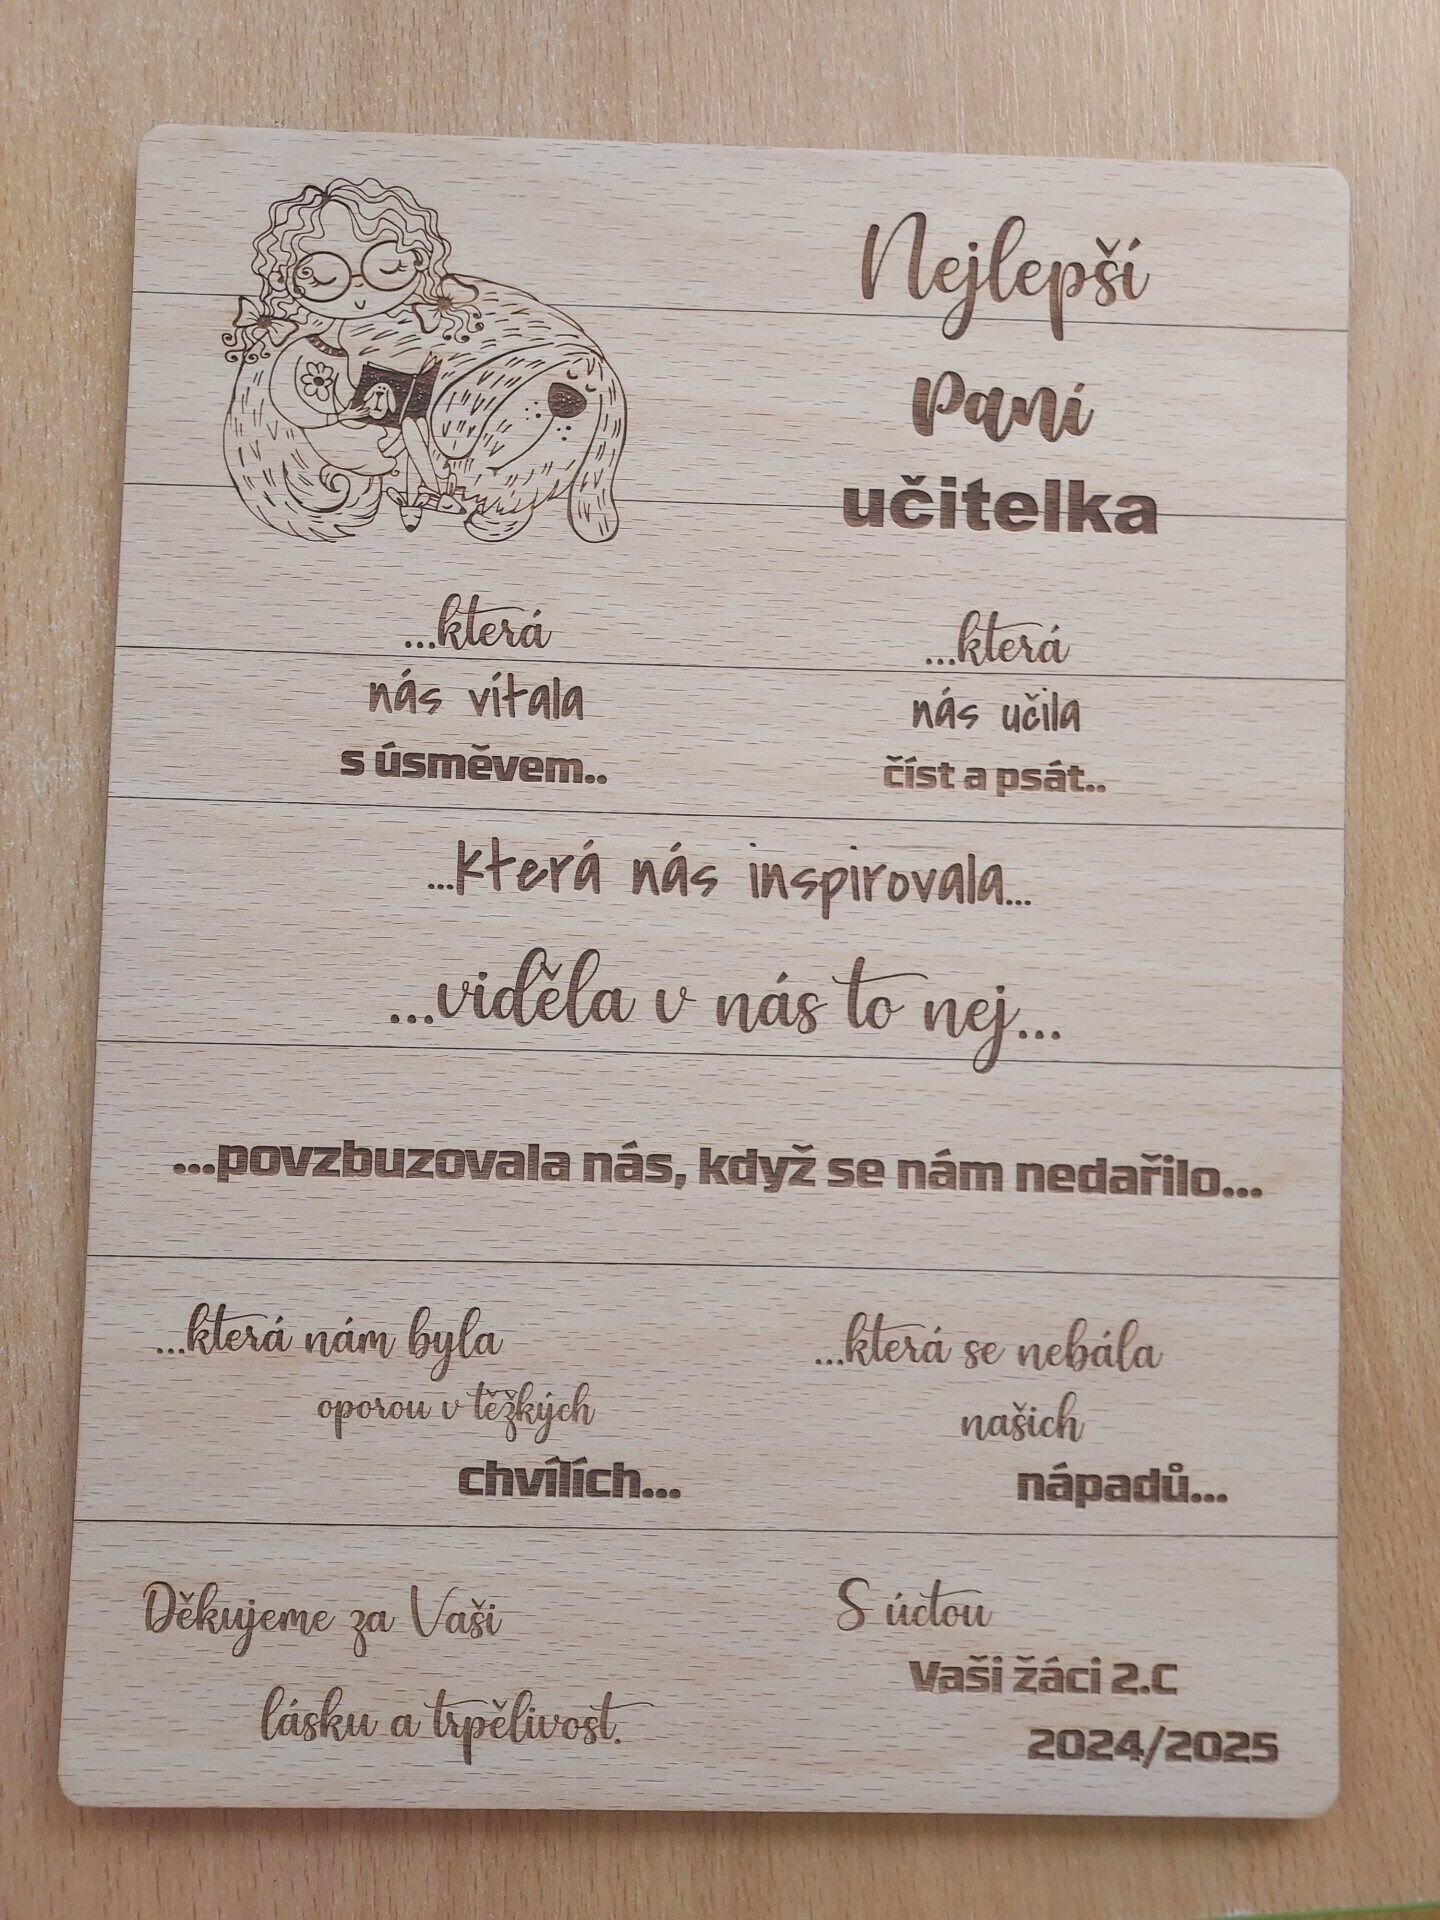 Nejlepší
Paní
učitelka
...která
nás vítala
s úsměvem..
...která
nás učila
číst a psát..
...která nás inspirovala...
...viděla v nás to nej...
...povzbuzovala nás, když se nám nedařilo...
...která nám byla
oporou v těžkých
chvílích...
...která se nebála
našich
nápadů...
Děkujeme za Vaši
lásku a trpělivost.
S úctou
Vaši žáci 2.C
2024/2025